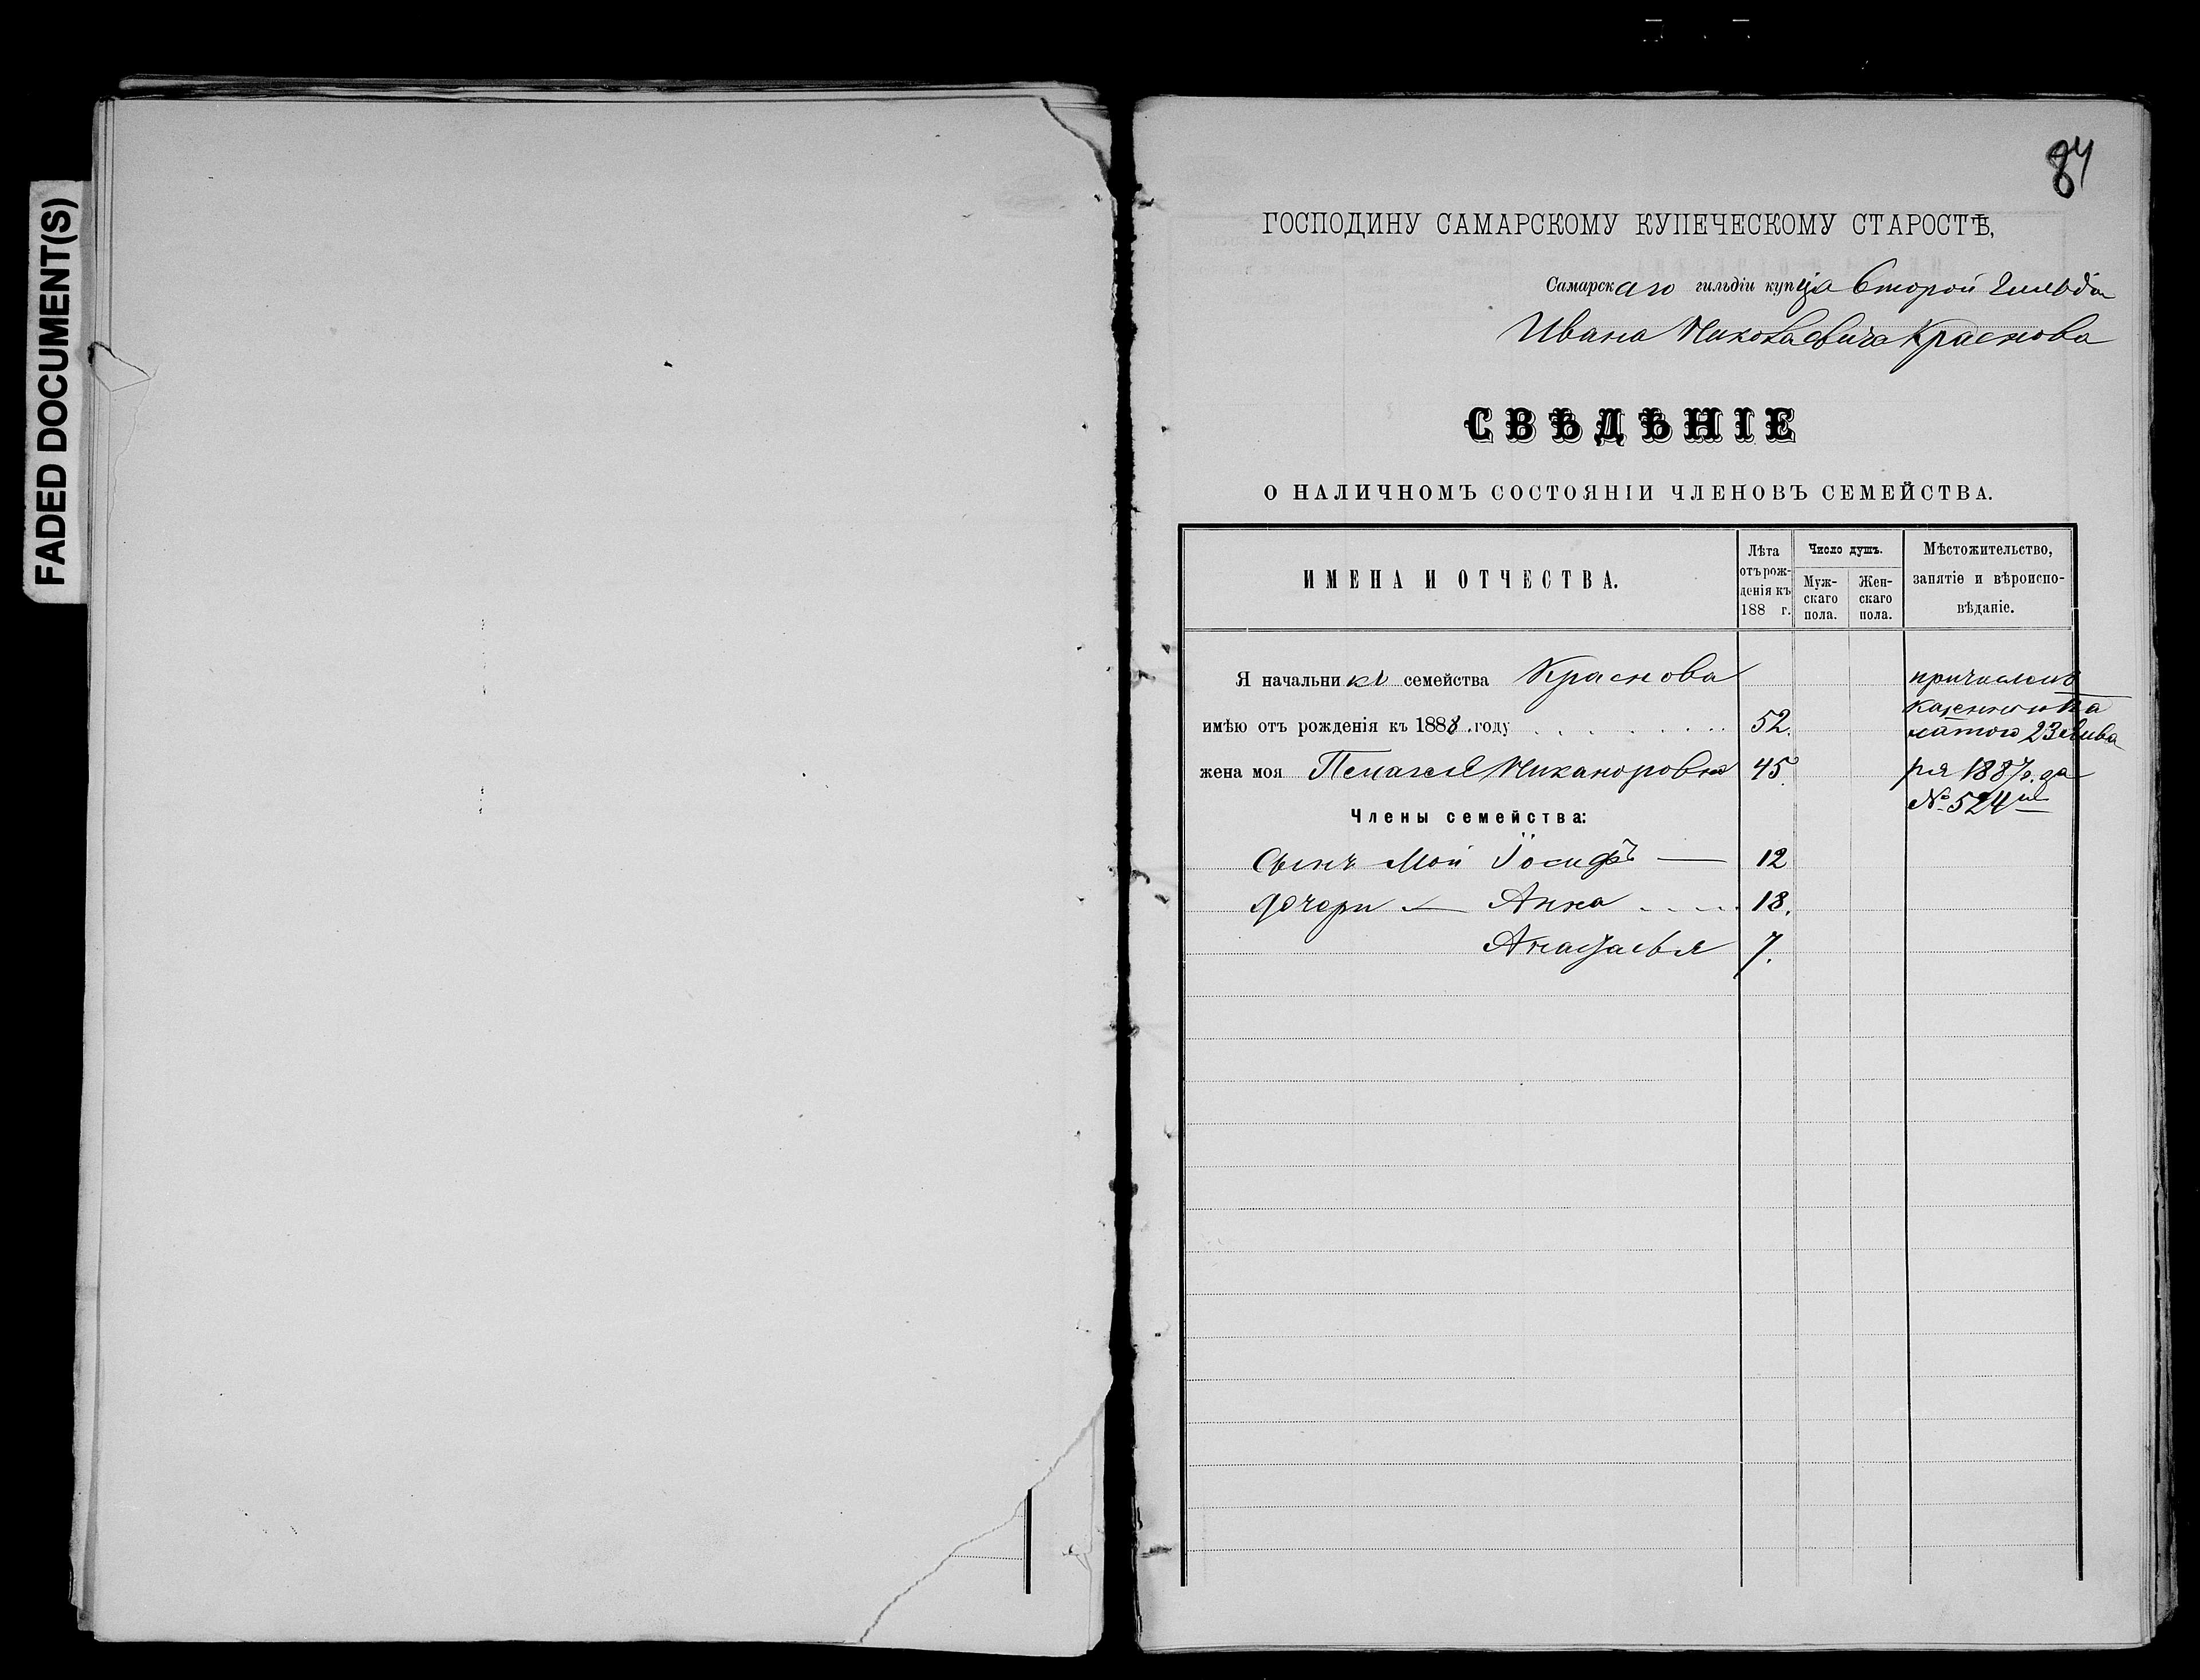 FADED DOCUMENT(S)
84
ГОСПОДИНУ САМАРСКОМУ КУПЕЧЕСКОМУ СТАРОСТѢ,
Самарскаго гильдіи купца Второй Гильдіи
Ивана Николаевича Краснова
СВѢДѢНІЕ
О НАЛИЧНОМЪ СОСТОЯНІИ ЧЛЕНОВЪ СЕМЕЙСТВА.
ИМЕНА И ОТЧЕСТВА.
Лѣта
отъ рож-
денія къ
188 г.
Число душъ.
Муж-
скаго
пола.
Жен-
скаго
пола.
Мѣстожительство,
запятіе и вѣроиспо-
вѣданіе.
Я начальникъ семейства Краснова
имѣю отъ рожденія къ 1888 году 52.
жена моя Пелагея Никаноровна 45.
причисленъ
казенною Па
латою 23 Янва
ря 1887 г. за
№ 524
Члены семейства:
Сынъ мой Іосифъ — 12
дочери — Анна 18.
Анастасья 7.